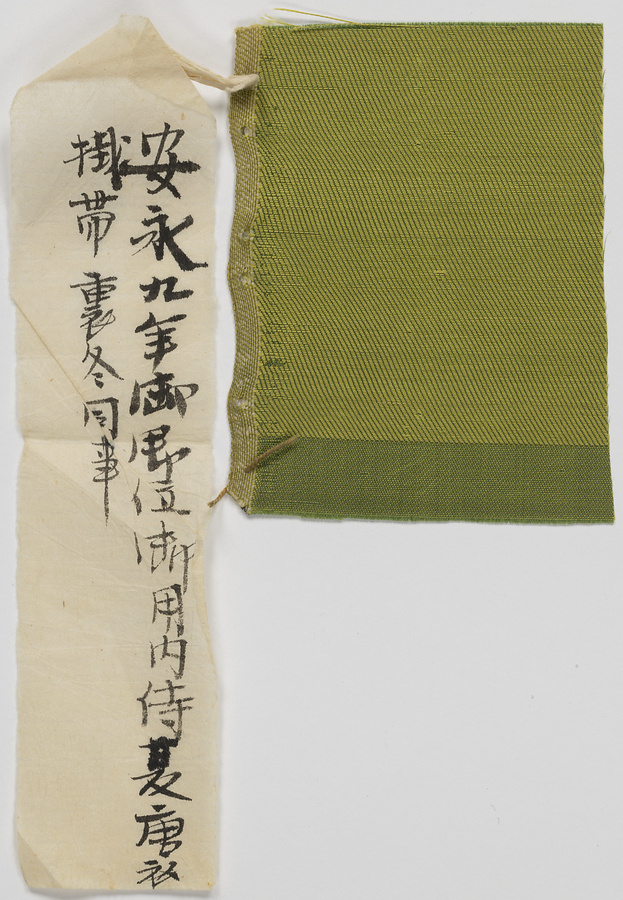 安永九年御即位御用内侍夏唐衣
掛帯裏冬同事